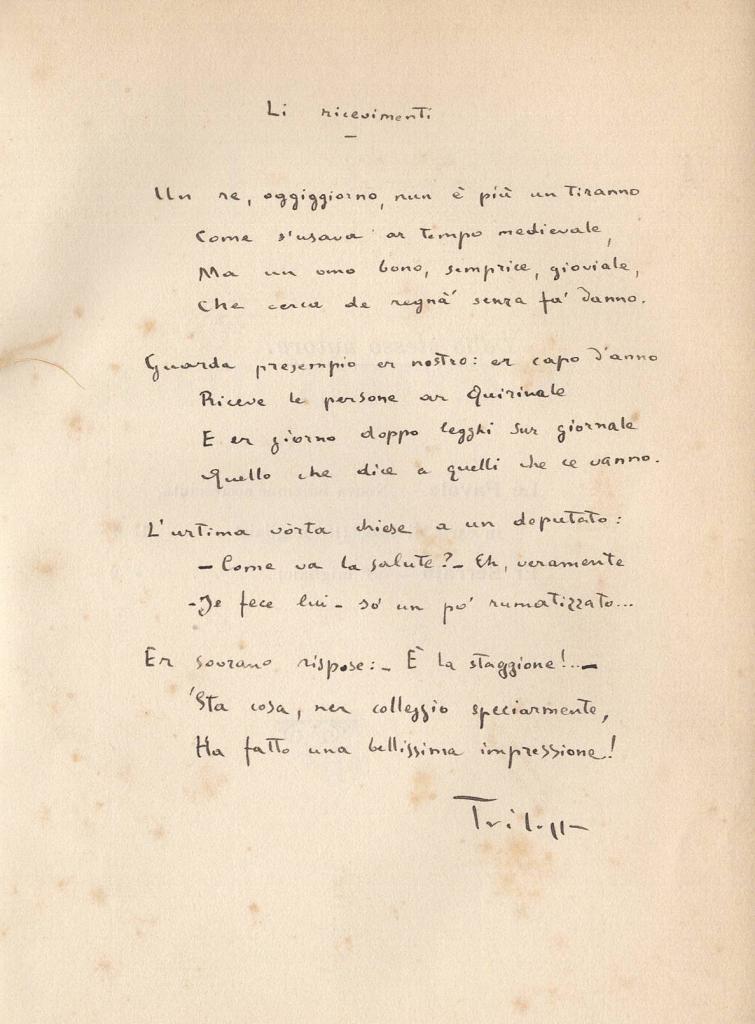 Li ricevimenti
Un re, oggiggiorno, nun è più un tiranno
Come s'usava ar tempo medievale,
Ma un omo bono, semprice, gioviale,
Che cerca de regnà senza fa' danno.
Guarda presempio er nostro: er capo d'anno
Riceve le persone ar Quirinale
E er giorno doppo legghi sur giornale
Quello che dice a quelli che ce vanno.
L'urtima vòrta chiese a un deputato:
– Come va la salute? – Eh, veramente
– Je fece lui – so' un po' rumatizzato...
Er sovrano rispose: – È la staggione!.. –
'Sta cosa, ner colleggio speciarmente,
Ha fatto una bellissima impressione!
Trilussa